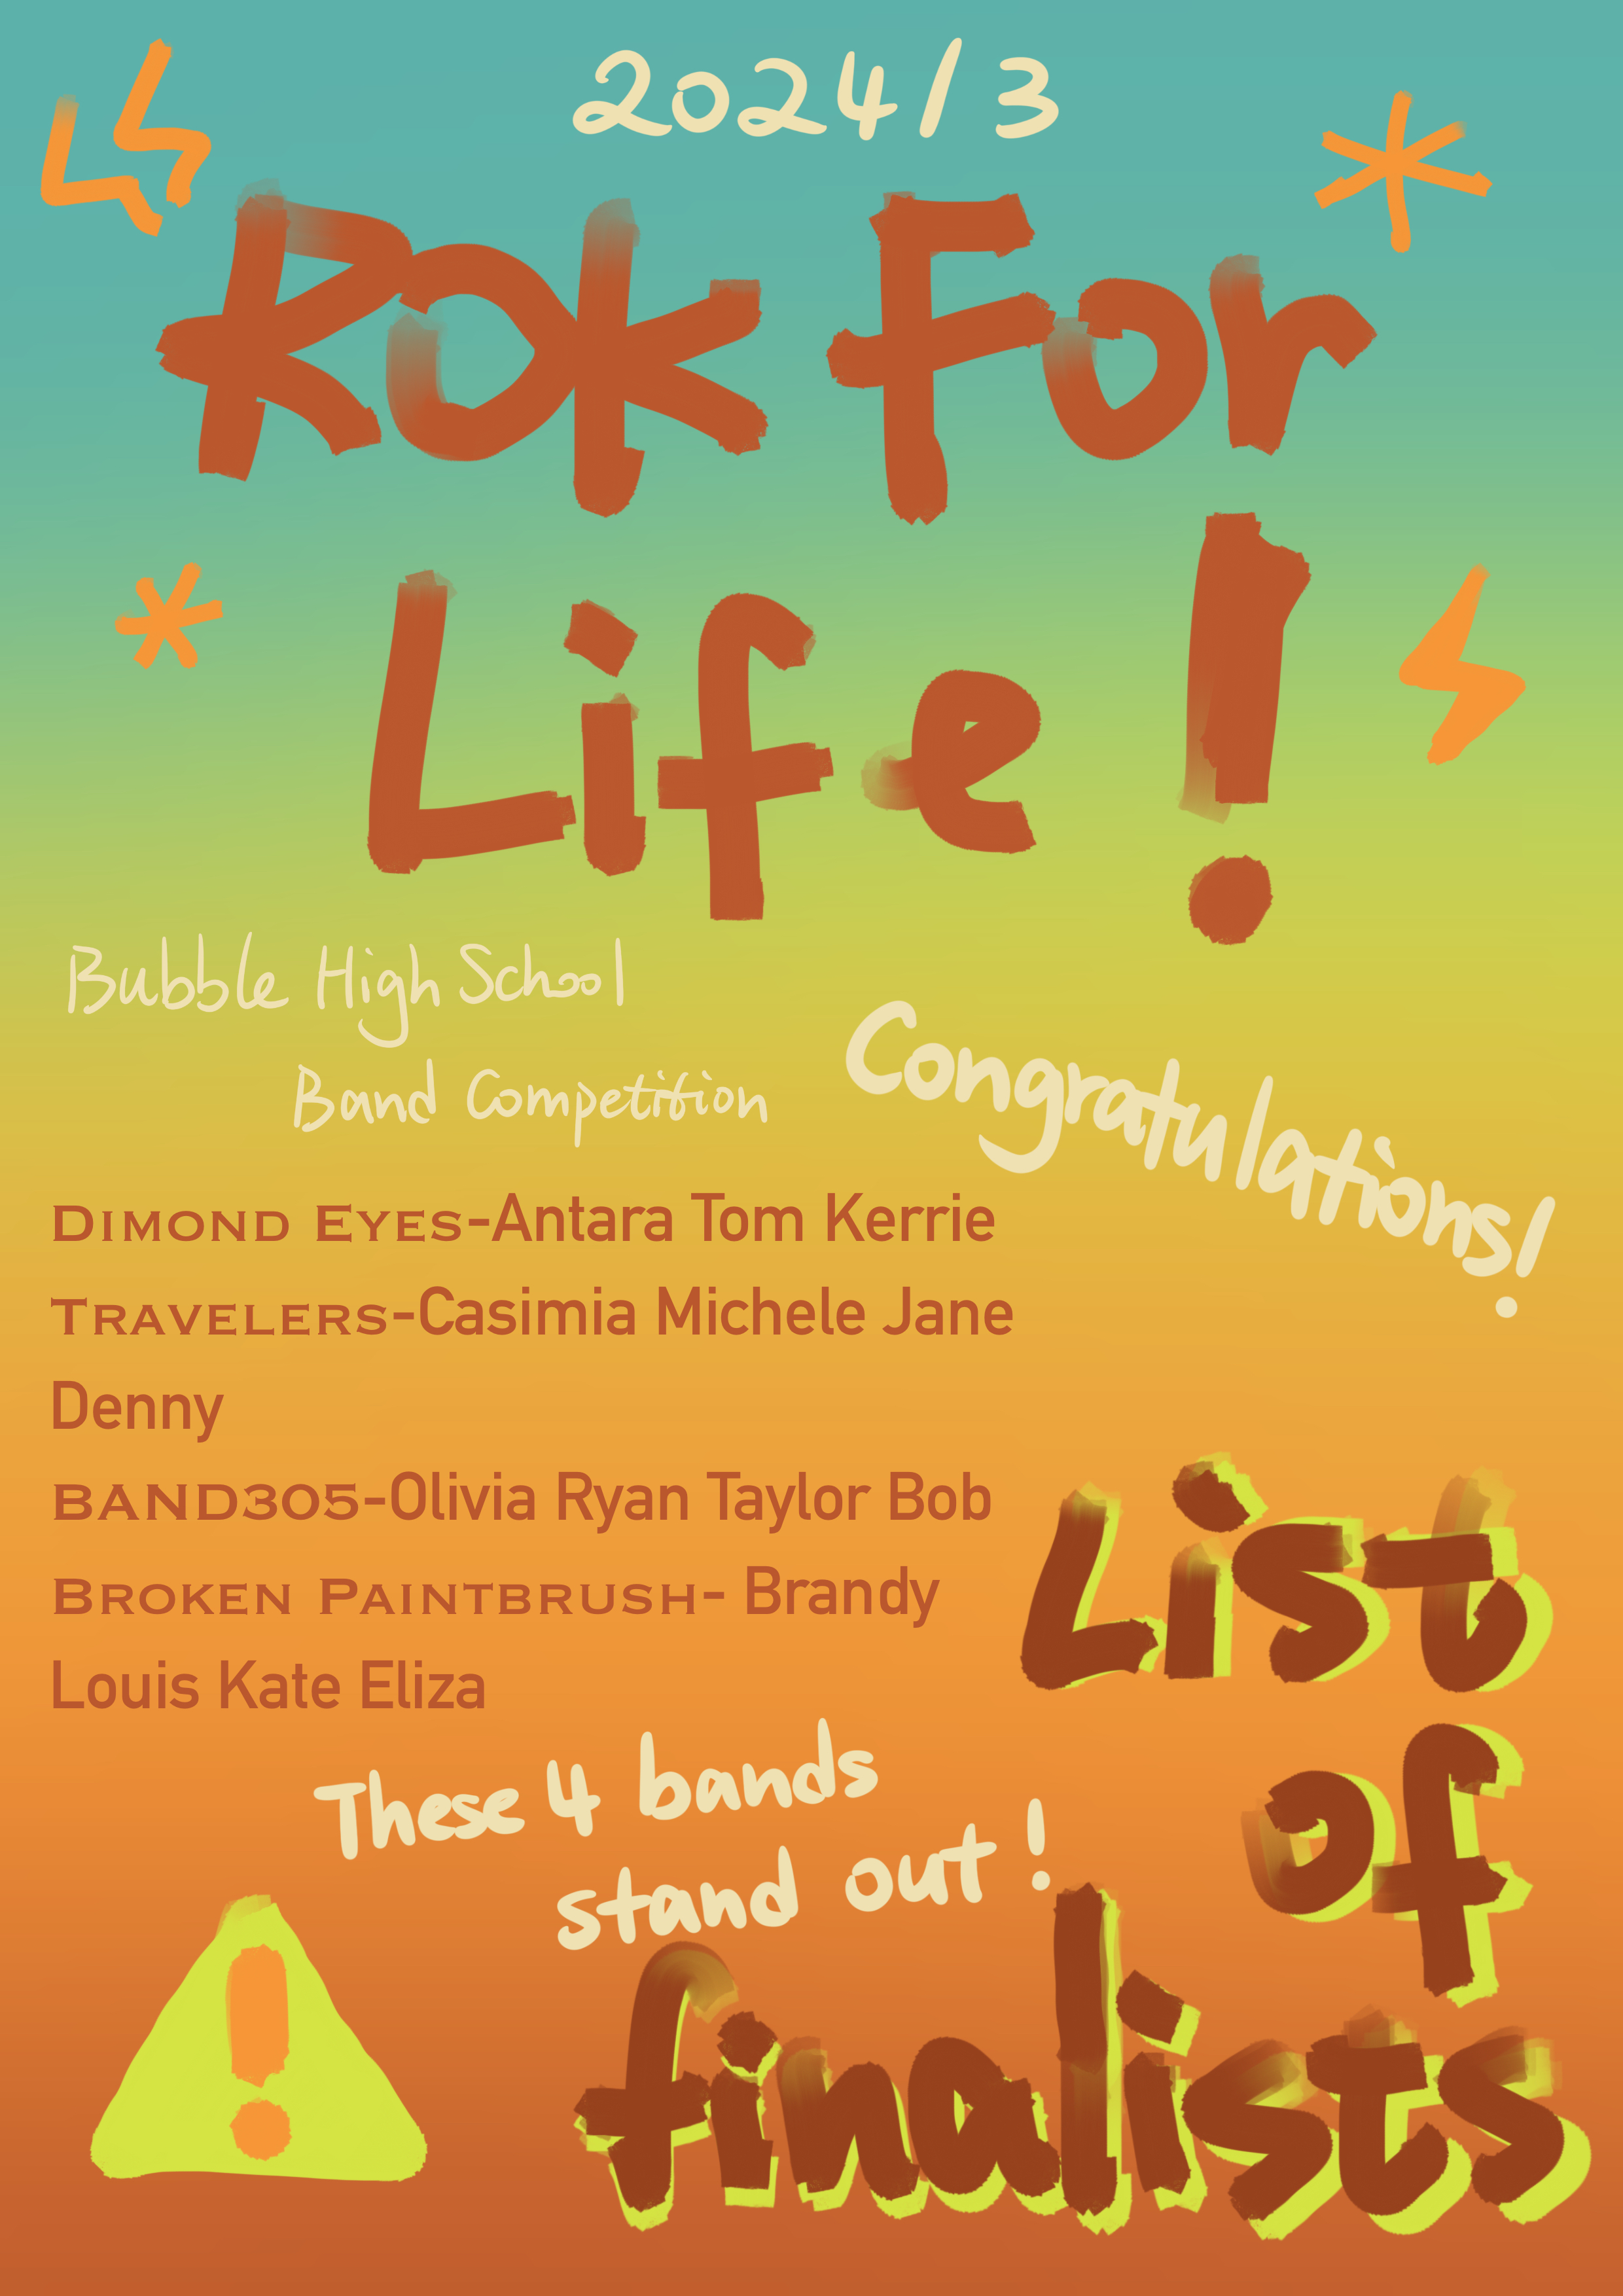 2024/3
Rok For
Life!
Bubble High School
Band Competition
Congratulations!
DIMOND EYES-Antara Tom Kerrie
TRAVELERS-Casimia Michele Jane
Denny
BAND305-Olivia Ryan Taylor Bob
BROKEN PAINTBRUSH- Brandy
Louis Kate Eliza
These 4 bands
stand out!
List
of
finalists
!